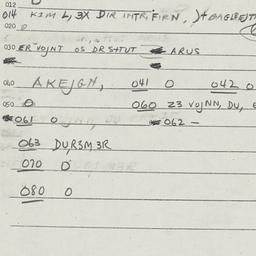 012
014 KIM L, 3X DIR INTR, FIRN, J+BAGLBEJTN
020 0
030 ER VOJNT OS DRSTTUT ARUS
040 AKEJGN, 041 0 042 0
050 0 060 Z3 VOJNN, DU,
061 0 062 -
063 DU,RSM 3R
070 0
080 0